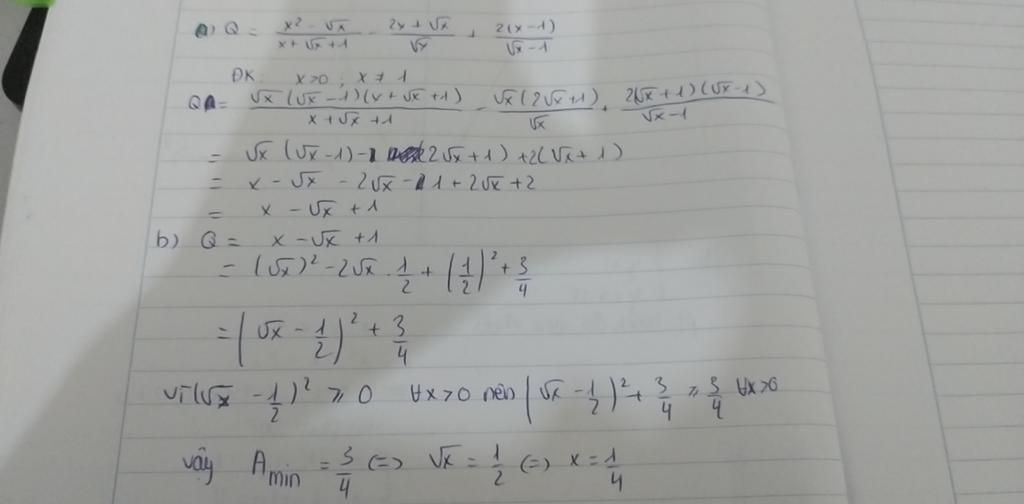 a) Q = \frac{x² - √x}{x + √x + 1} - \frac{2x + √x}{√x} + \frac{2(x - 1)}{√x - 1}
ĐK: x > 0; x ≠ 1
Q = \frac{√x (√x - 1)(x + √x + 1)}{x + √x + 1} - \frac{√x (2√x + 1)}{√x} + \frac{2(√x + 1)(√x - 1)}{√x - 1}
= √x (√x - 1) - (2√x + 1) + 2(√x + 1)
= x - √x - 2√x - 1 + 2√x + 2
= x - √x + 1
b) Q = x - √x + 1
= (√x)² - 2√x . \frac{1}{2} + (\frac{1}{2})² + \frac{3}{4}
= (√x - \frac{1}{2})² + \frac{3}{4}
vì (√x - \frac{1}{2})² ≥ 0 ∀x > 0 nên (√x - \frac{1}{2})² + \frac{3}{4} ≥ \frac{3}{4} ∀x > 0
vậy A min = \frac{3}{4} (=) √x = \frac{1}{2} (=) x = \frac{1}{4}